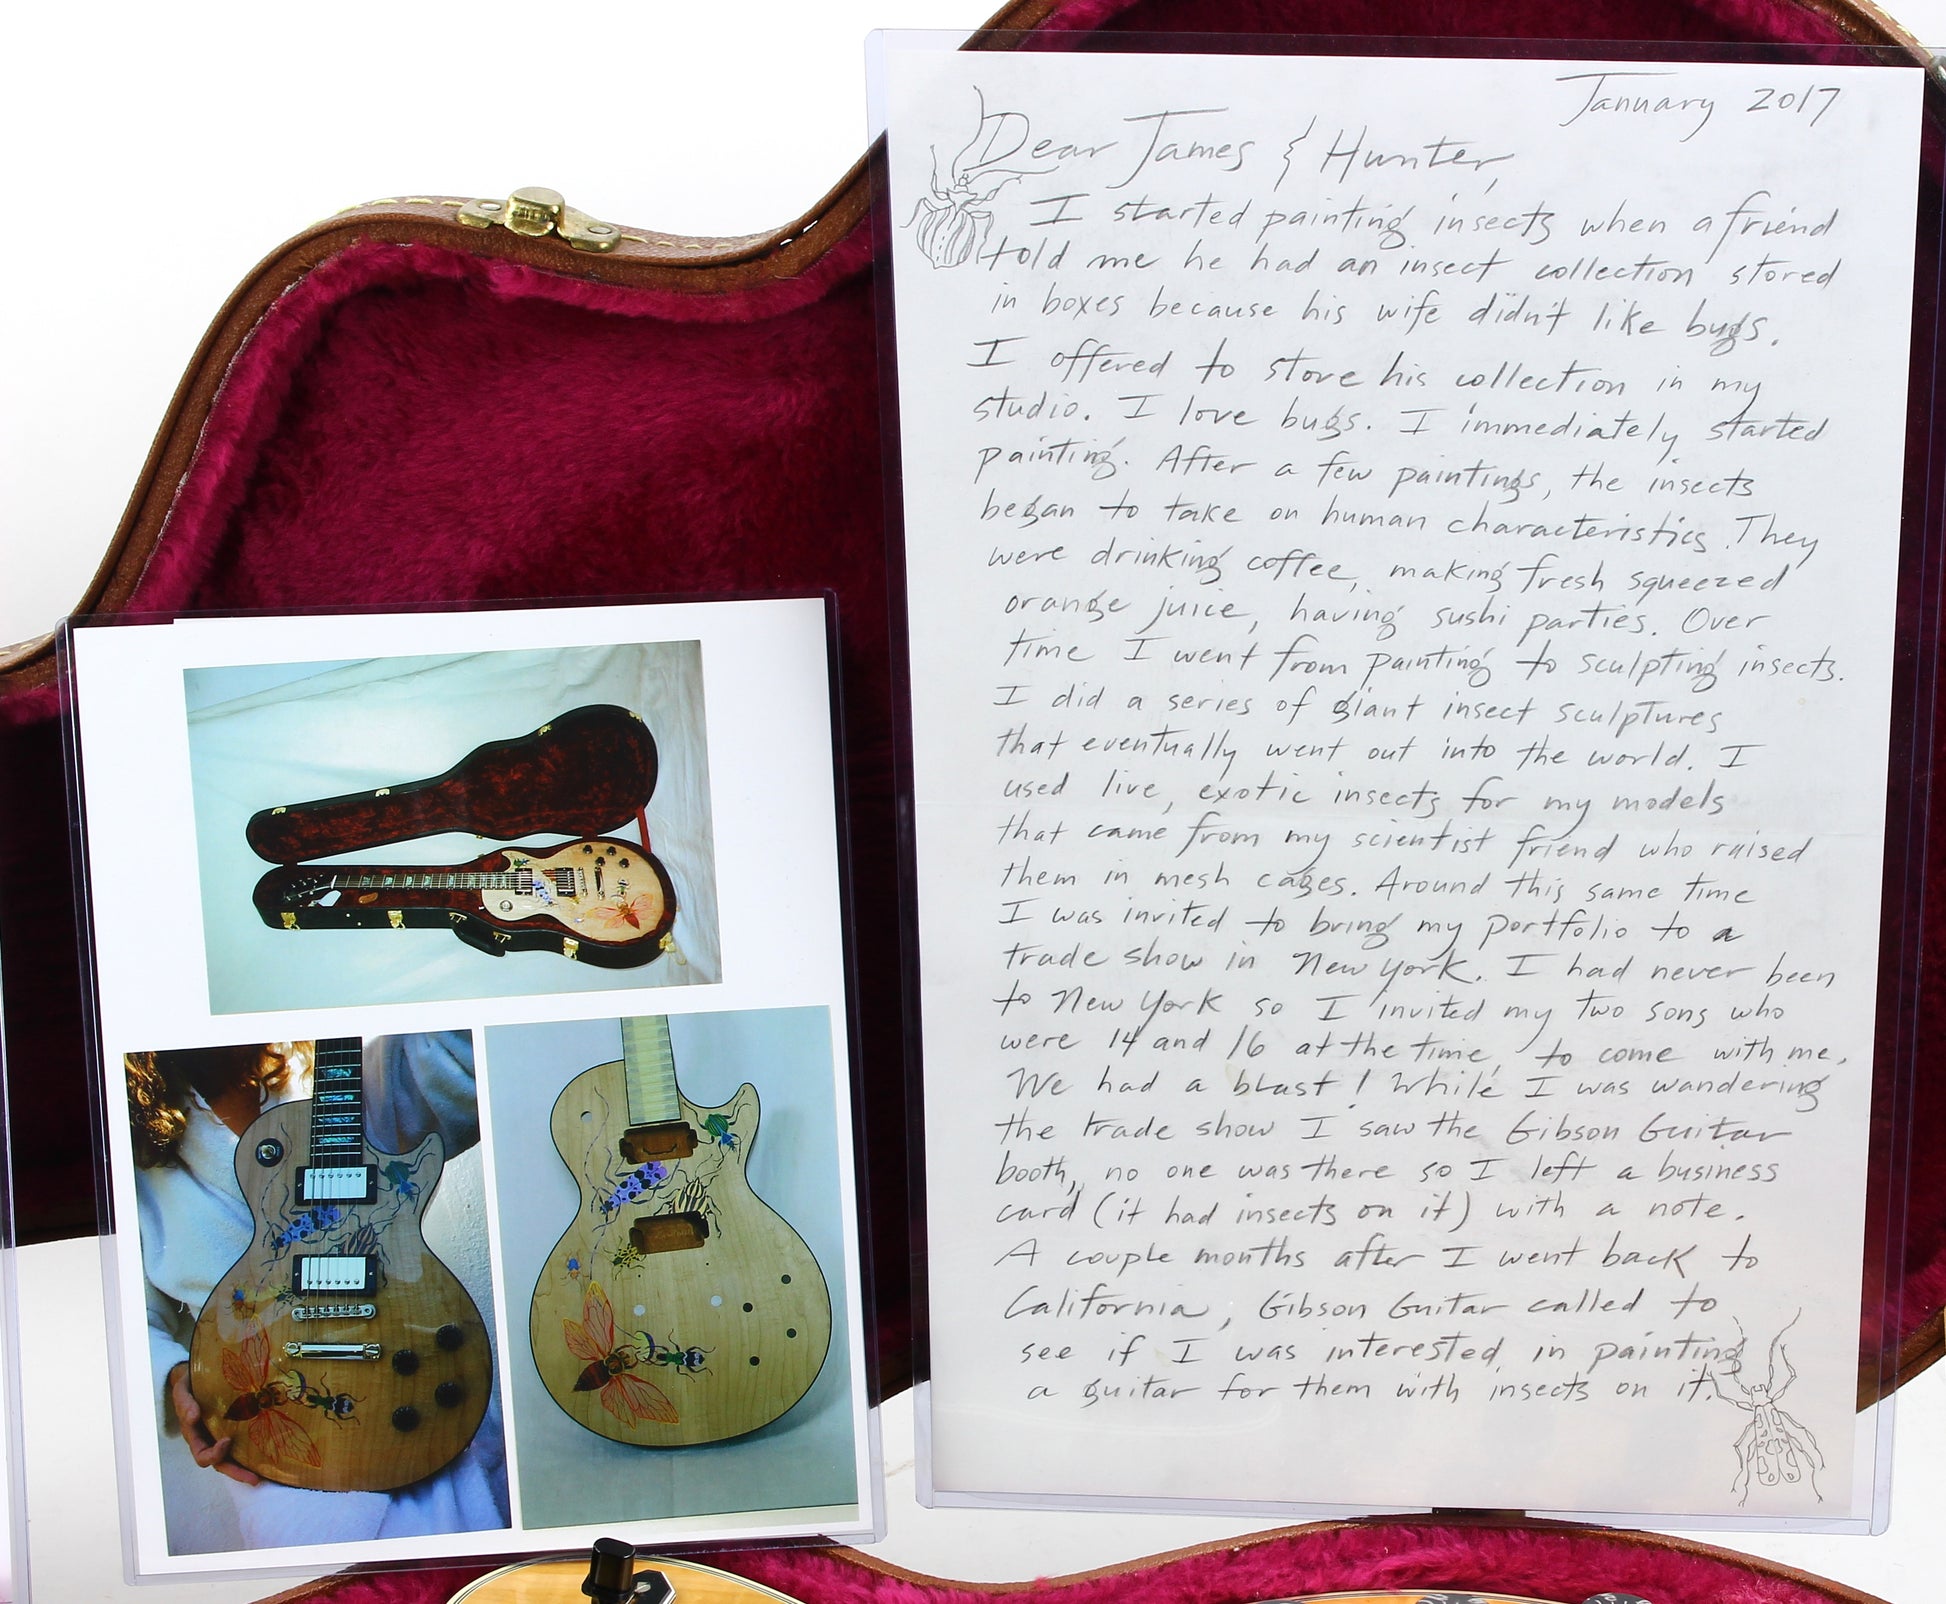 January 2017
Dear James & Hunter,
I started painting insects when a friend
told me he had an insect collection stored
in boxes because his wife didn't like bugs.
I offered to store his collection in my
studio. I love bugs. I immediately started
painting. After a few paintings, the insects
began to take on human characteristics. They
were drinking coffee, making fresh squeezed
orange juice, having sushi parties. Over
time I went from painting to sculpting insects.
I did a series of giant insect sculptures
that eventually went out into the world. I
used live, exotic insects for my models
that came from my scientist friend who raised
them in mesh cages. Around this same time
I was invited to bring my portfolio to a
trade show in New York. I had never been
to New York so I invited my two sons who
were 14 and 16 at the time, to come with me.
We had a blast! While I was wandering
the trade show I saw the Gibson Guitar
booth, no one was there so I left a business
card (it had insects on it) with a note.
A couple months after I went back to
California, Gibson Guitar called to
see if I was interested in painting
a guitar for them with insects on it.